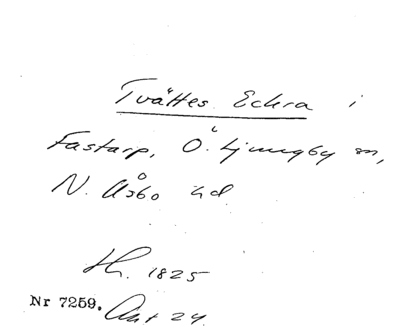 Tvättes Eckra i
Fastarp, Ö. Ljungby sn,
N. Åsbo hd.
H. 1825
Nr 7259. Akt 24.